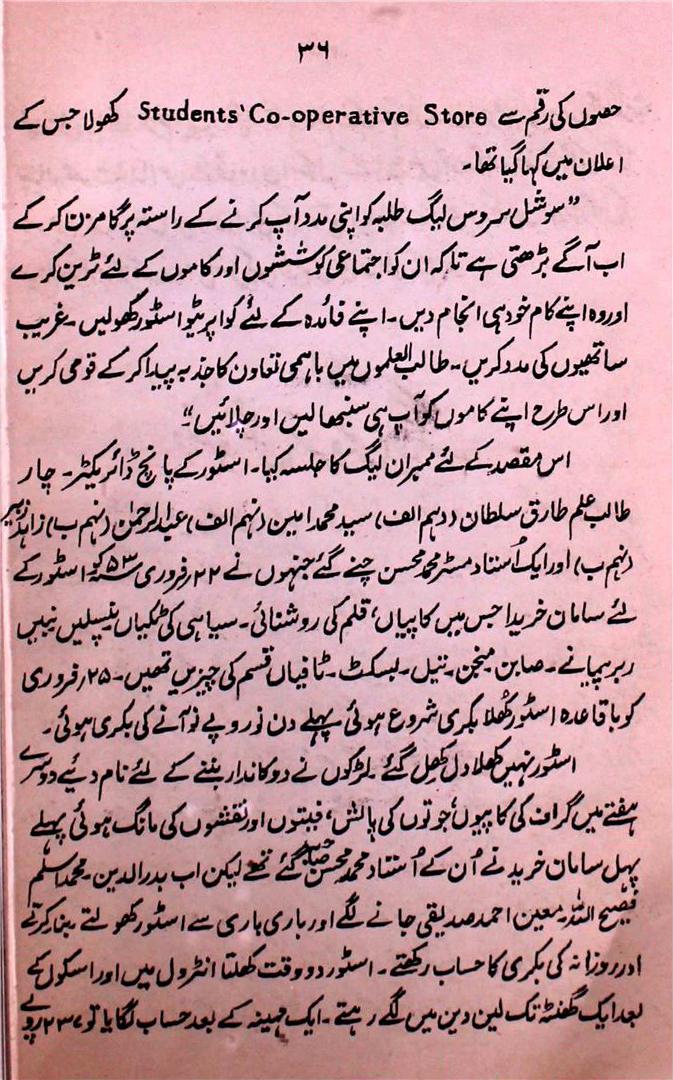 ۳۶
حصوں کی رقم سے Students' Co-operative Store کھولا جس کے
اعلان میں کہا گیا تھا۔
”سوشل سروس لیگ طلبہ کو اپنی مدد آپ کرنے کے راستہ پر گامزن کر کے
اب آگے بڑھتی ہے تاکہ ان کو اجتماعی کوششوں اور کاموں کے لئے ٹرین کرے
اور وہ اپنے کام خود ہی انجام دیں۔ اپنے فائدہ کے لئے کواپریٹو اسٹور کھولیں۔ غریب
ساتھیوں کی مدد کریں۔ طالب العلموں میں باہمی تعاون کا جذبہ پیدا کر کے قومی کریں
اور اس طرح اپنے کاموں کو آپ ہی سنبھالیں اور چلائیں“
اس مقصد کے لئے ممبران لیگ کا جلسہ کیا۔ اسٹور کے پانچ ڈائریکٹر۔ چار
طالب علم طارق سلطان (دہم الف) سید محمد امین (نہم الف) عبدالرحمٰن (نہم ب) زاہد زبیر
(نہم ب) اور ایک اُستاد مسٹر محمد محسن چنے گئے جنہوں نے ۲۲؍ فروری ۵۳ء کو اسٹور کے
لئے سامان خریدا جس میں کاپیاں، قلم کی روشنائی۔ سیاہی کی ٹکیاں پنسلیں نبیں
ربر پیمانے۔ صابن منجن۔ تیل۔ بسکٹ۔ ٹافیاں قسم کی چیزیں تھیں۔ ۲۵؍ فروری
کو باقاعدہ اسٹور کھلا بکری شروع ہوئی پہلے دن نو روپے نو آنے کی بکری ہوئی۔
اسٹور نہیں کھلا دل کھل گئے۔ لڑکوں نے دوکاندار بننے کے لئے نام دئیے دوسرے
ہفتے میں گراف کی کاپیوں، جوتوں کی پالش، فیتوں اور نقشوں کی مانگ ہوئی پہلے
پہل سامان خریدنے اُن کے اُستاد محمد محسن صاحب گئے تھے لیکن اب بدر الدین۔ محمد اسلم
فصیح اللہ۔ معین احمد صدیقی جانے لگے اور باری باری سے اسٹور کھولتے۔ بند کرتے
اور روزانہ کی بکری کا حساب رکھتے۔ اسٹور دو وقت کھلتا انٹرول میں اور اسکول کے
بعد ایک گھنٹہ تک لین دین میں لگے رہتے۔ ایک مہینہ کے بعد حساب لگایا تو ۲۳۷ روپے